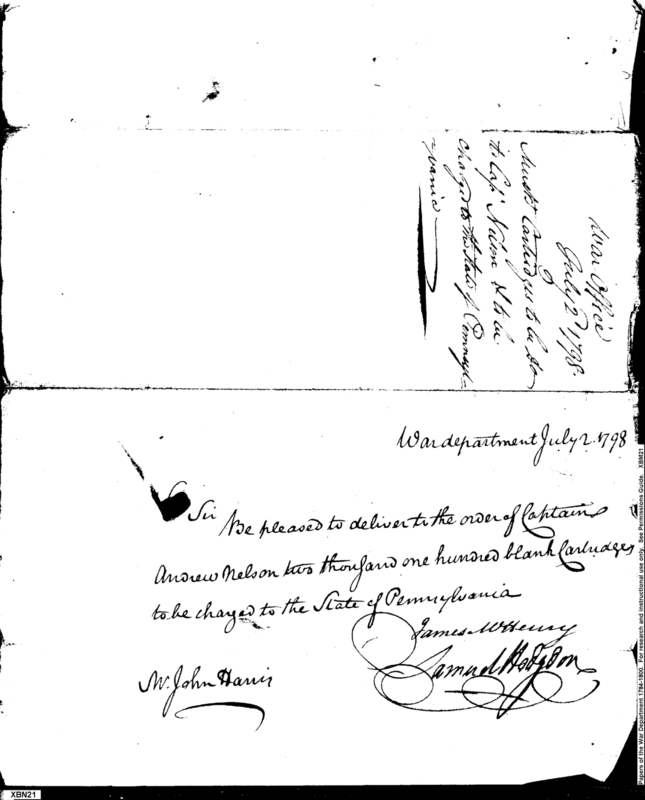 War Office
July 2d 1798
Musket Cartridges to be
to Cap. Nelson & to be
charged to the State of Pennsyl-
vania
War department July 2. 1798
Sir
Be pleased to deliver to the order of Captain
Andrew Nelson two thousand one hundred blank Cartridges
to be charged to the State of Pennsylvania
James McHenry
Samuel Hodgdon
Mr. John Harris
Papers of the War Department 1784-1800. For research and instructional use only. See Permissions Guide. XBM21
XBN21